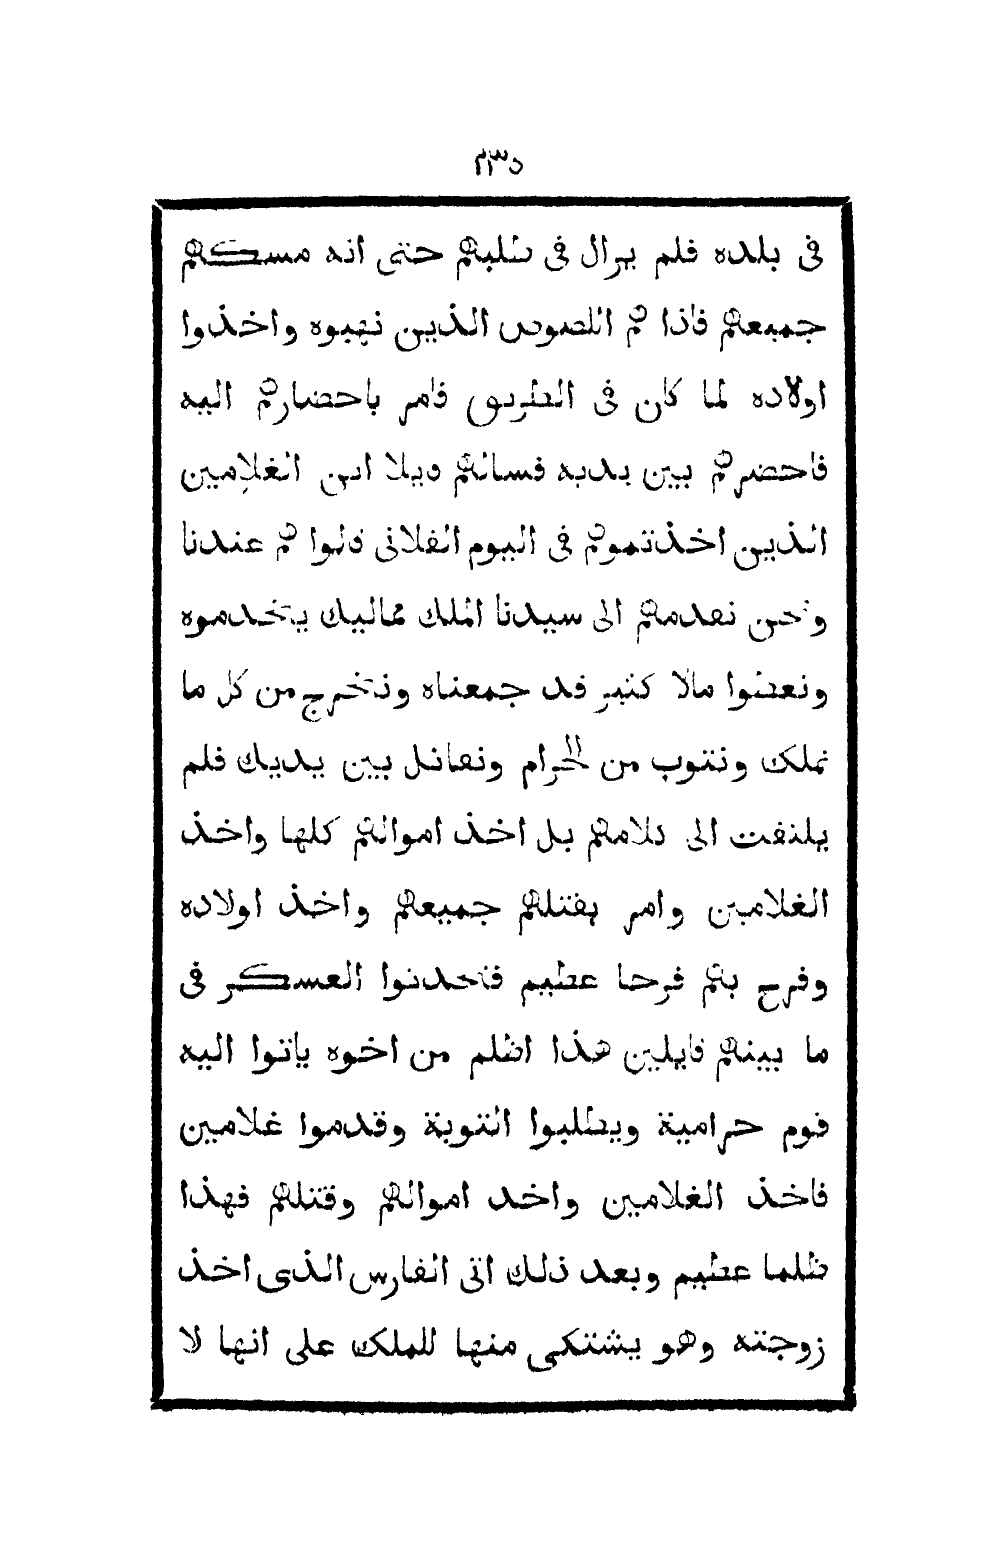 ٢٣٥
في بلده فلم يزال في طلبهم حتى انه مسكهم
جميعهم فاذا هم اللصوص الذين نهبوه واخذوا
اولاده لما كان في الطريق فامر باحضارهم اليه
فاحضرهم بين يديه فسالهم قايلا اين الغلامين
الذين اخذتموهم في اليوم الفلاني قالوا هم عندنا
ونحن نقدمهم الى سيدنا الملك مماليك يخدموه
ونعطوا مالا كثير قد جمعناه ونخرج من كل ما
نملك ونتوب من الحرام ونقاتل بين يديك فلم
يلتفت الى كلامهم بل اخذ اموالهم كلها واخذ
الغلامين وامر بقتلهم جميعهم واخذ اولاده
وفرح بهم فرحا عظيم فتحدثوا العسكر في
ما بينهم قايلين هذا اظلم من اخوه ياتوا اليه
قوم حرامية ويطلبوا التوبة وقدموا غلامين
فاخذ الغلامين واخد اموالهم وقتلهم فهذا
ظلما عظيم وبعد ذلك اتى الفارس الذى اخذ
زوجته وهو يشتكى منها للملك على انها لا